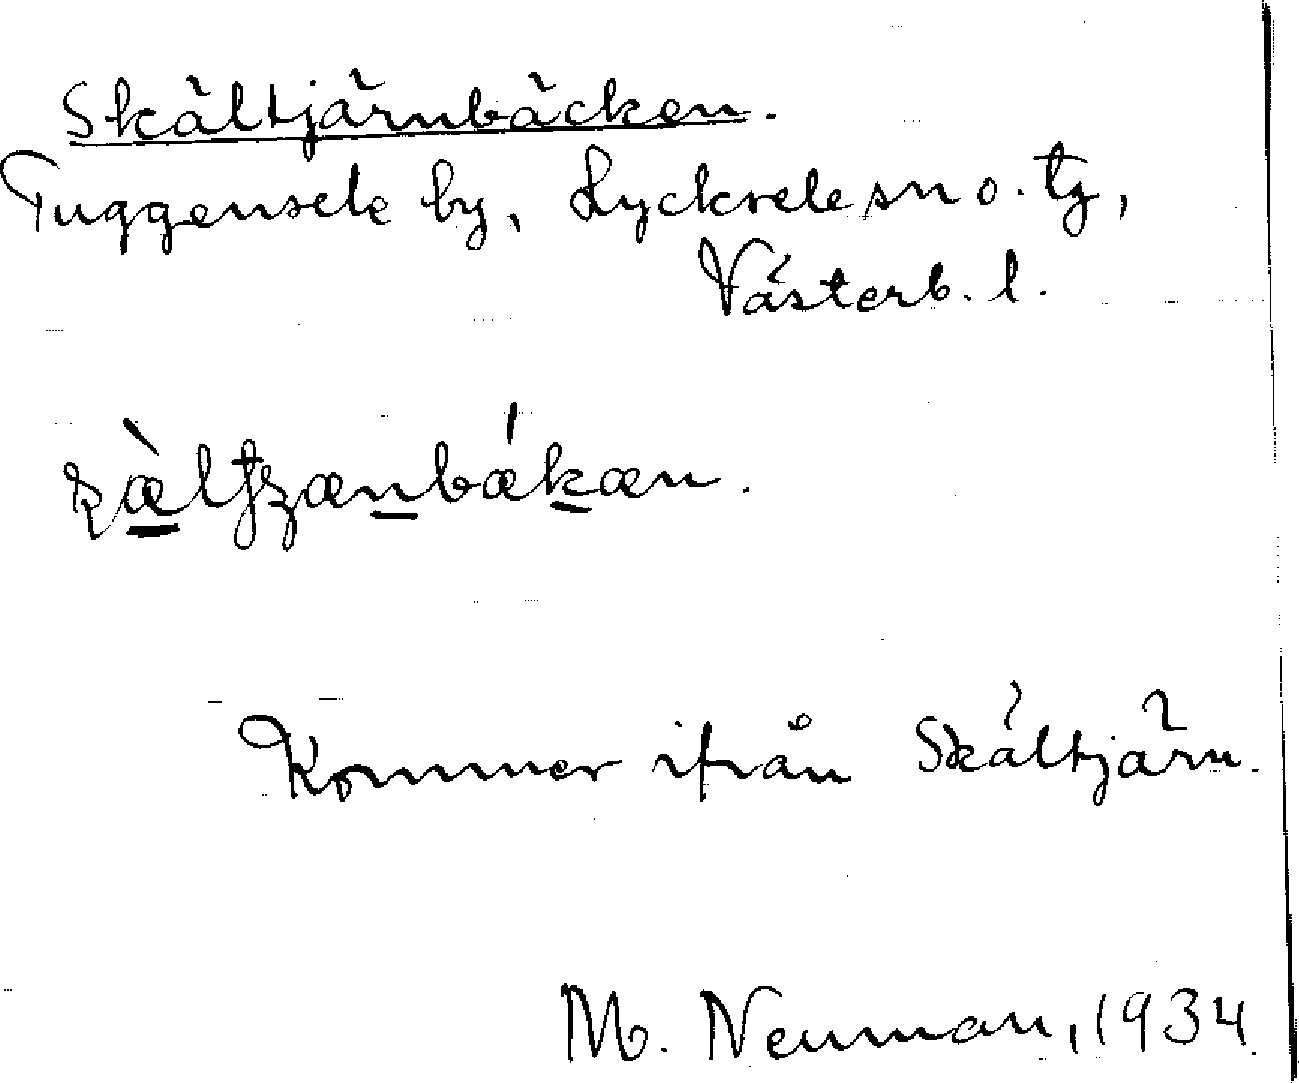 Skältjärnbäcken.
Tuggensele by, Lycksele sn o. tg,
Västerb. l.
Kommer ifrån Skältjärn.
M. Neuman, 1934.